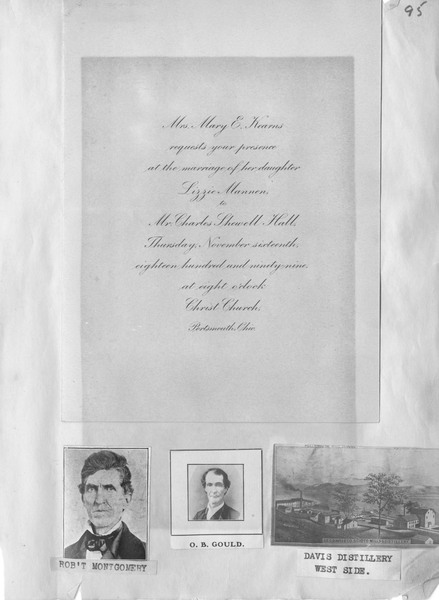 95
Mrs. Mary E. Kearns
requests your presence
at the marriage of her daughter
Lizzie Mannen,
to
Mr. Charles Shewell Hall,
Thursday, November sixteenth,
eighteen hundred and ninety-nine,
at eight o'clock
Christ Church,
Portsmouth, Ohio
ROB'T MONTGOMERY
O. B. GOULD.
DAVIS DISTILLERY
WEST SIDE.